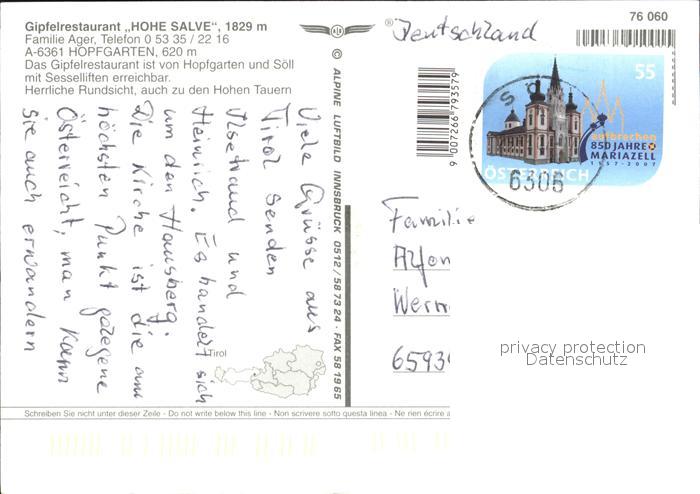 Gipfelrestaurant „HOHE SALVE", 1829 m
Familie Ager, Telefon 0 53 35 / 22 16
A-6361 HOPFGARTEN, 620 m
Das Gipfelrestaurant ist von Hopfgarten und Söll
mit Sesselliften erreichbar.
Herrliche Rundsicht, auch zu den Hohen Tauern
Viele Grüsse aus
Tirol senden
Ilsetraud und
Heinrich. Es handert sich
um den Hausberg.
Die Kirche ist die am
höchsten Punkt gelegene
Österreicht, man kann
sie auch erwandern
Tirol
© ALPINE LUFTBILD INNSBRUCK 0512 / 58 73 24 · FAX 58 19 65
®
Deutschland
76 060
9 007266 793579
55
aufbrechen
850 JAHRE
MARIAZELL
1157-2007
ÖSTERREICH
6306
Familie
Alfon
Wern
6593
privacy protection
Datenschutz
Schreiben Sie nicht unter dieser Zeile - Do not write below this line - Non scrivere sotto questa linea - Ne rien écrire a